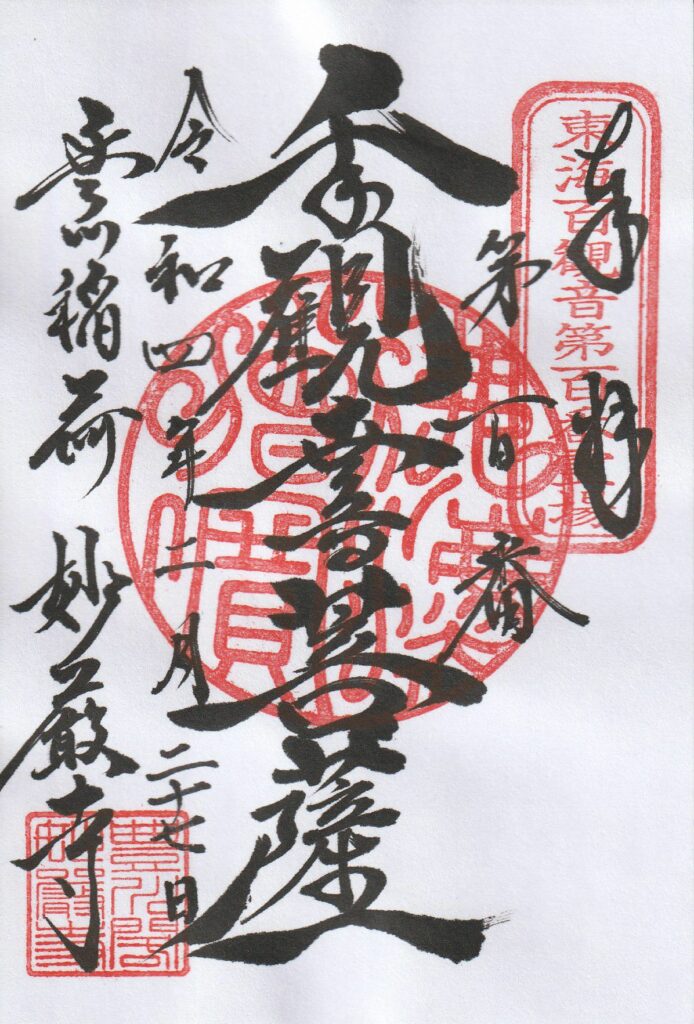 奉拝
東海百観音第百番霊場
第百番
千手觀音菩薩
令和四年二月二十七日
豊川稲荷 妙厳寺